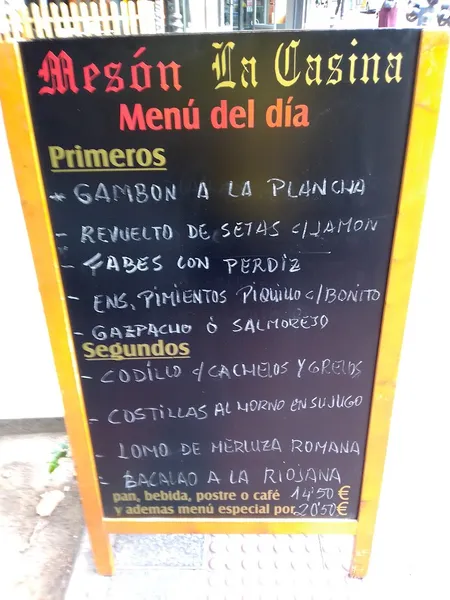 Mesón La Casina
Menú del día
Primeros
* GAMBON A LA PLANCHA
- REVUELTO DE SETAS C/JAMON
- FABES CON PERDIZ
- ENS, PIMIENTOS PIQUILLO C/BONITO
- GAZPACHO Ó SALMOREJO
Segundos
- CODILLO C/CACHELOS Y GRELOS
- COSTILLAS AL HORNO EN SU JUGO
- LOMO DE MERLUZA ROMANA
- BACALAO A LA RIOJANA
pan, bebida, postre o café 14'50 €
y ademas menú especial por 20'50 €